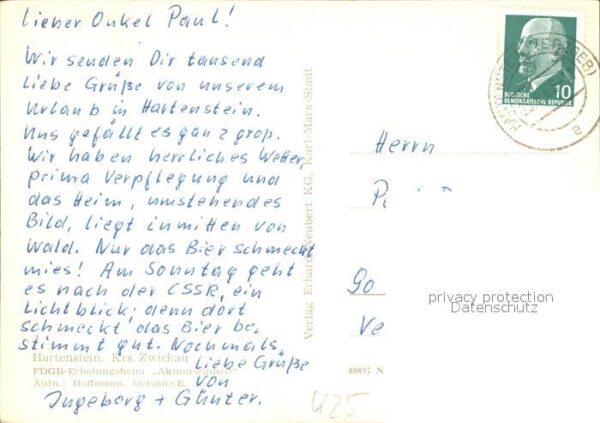 Lieber Onkel Paul!
Wir senden Dir tausend
liebe Grüße von unserem
Urlaub in Hartenstein.
Uns gefällt es ganz groß.
Wir haben herrliches Wetter,
prima Verpflegung und
das Heim, umstehendes
Bild, liegt inmitten von
Wald. Nur das Bier schmeckt
mies! Am Sonntag geht
es nach der CSSR, ein
Lichtblick; denn dort
schmeckt das Bier be-
stimmt gut. Nochmals
liebe Grüße
von
Ingeborg + Günter.
Hartenstein, Krs. Zwickau
FDGB-Erholungsheim „Aktionseinheit“
Aufn.: Hoffmann, Oelsnitz/E.
Verlag Erhard Neubert KG, Karl-Marx-Stadt
10
DEUTSCHE
DEMOKRATISCHE REPUBLIK
Herrn
P
90
Ve
privacy protection
Datenschutz
40897 N
425